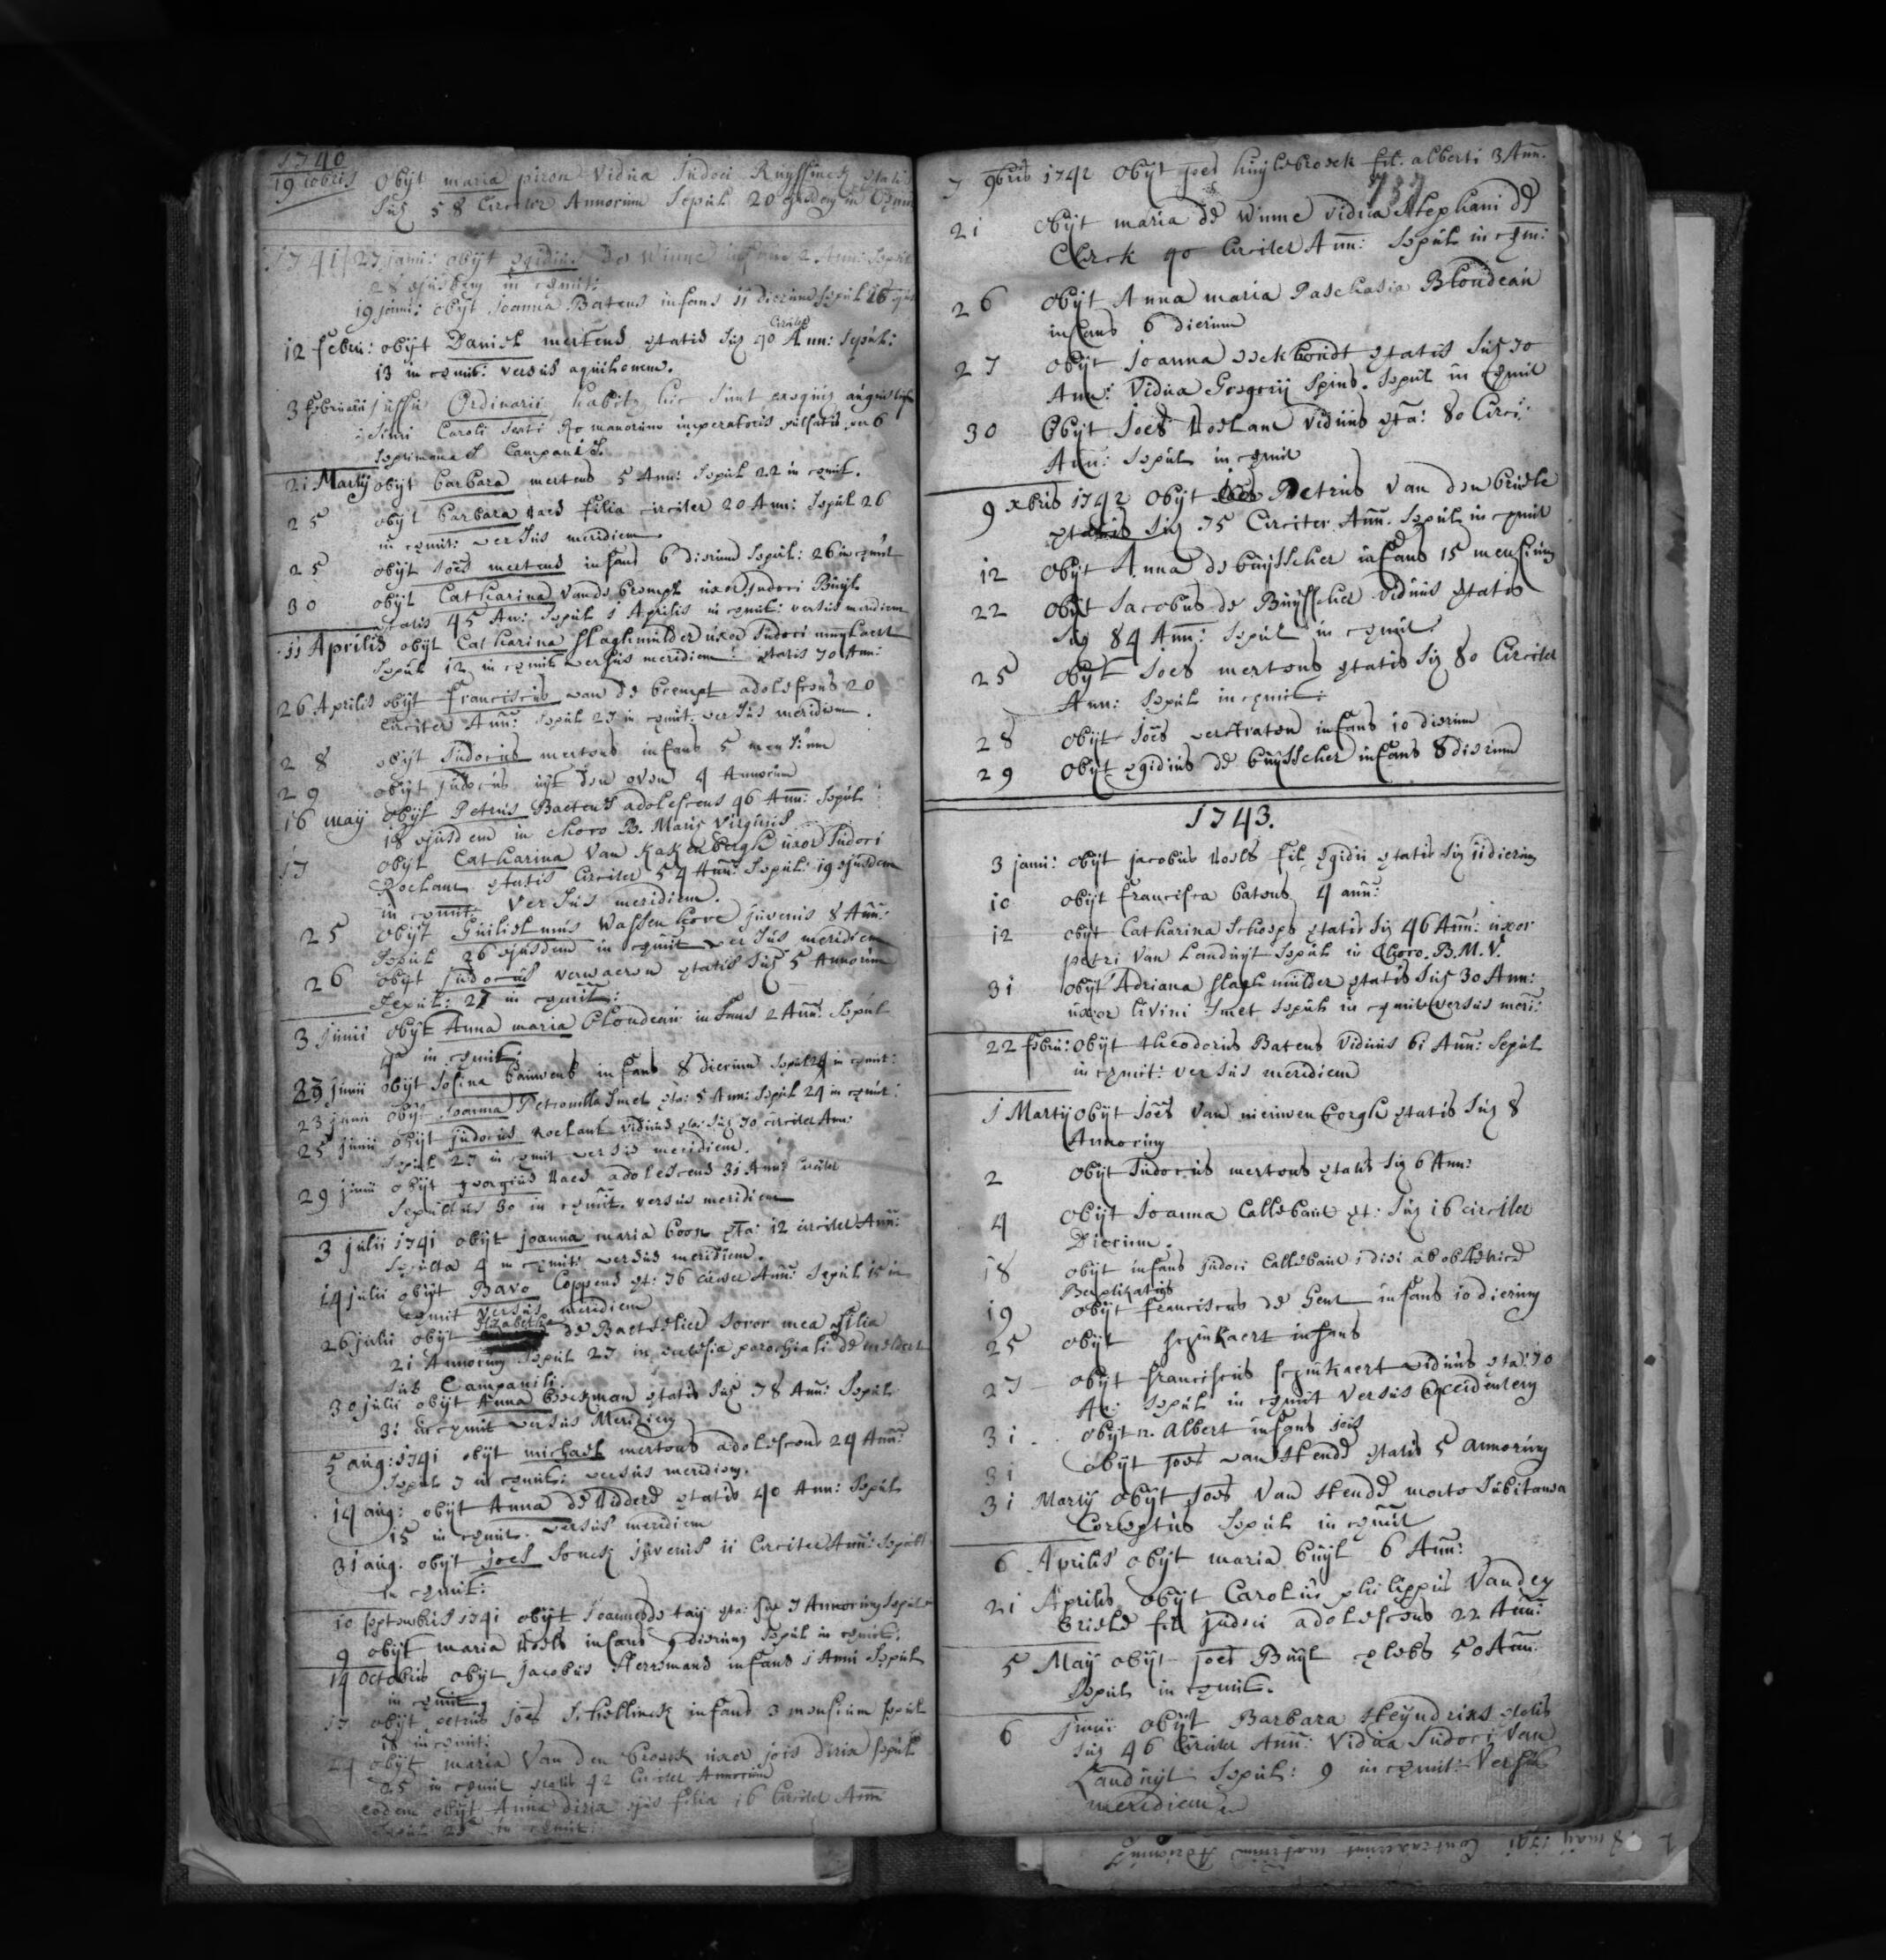 1740
19 xobris obijt maria piron Vidua Judoci Ruyssinck ætatis
suæ 58 Circiter Annorum Sepult 20 ejusdem in Cæmit
1741 27 januı: obijt egidius De Winne infans 2 Ann: Sepult
28 ejusdem in cæmit:
19 januı: obijt Joanna Batens infans 11 dierum sepult 26
12 febru: obijt Daniel mertens ætatis suæ 40 Circiter Ann: sepult:
13 in cæmit: versus aquilonem.
3 februarii jussu Ordinarii habitæ hic sunt exequiæ
Caroli sexti Romanorum imperatoris pulsatis per 6
septimanas Campanis.
21 Martij obijt barbara mertens 5 Ann: Sepult 22 in cæmit.
25 obijt barbara Raes filia circiter 20 Ann: Sepult 26
in cæmit: versus meridiem
25 obijt Joes mertens infans 6 dierum Sepult: 26 in cæmit
30 obijt Catharina vande brempt uxor Judoci Buyl
ætatis 45 An: Sepult 1 Aprilis in cæmit: versus meridiem
11 Aprilis obijt Catharina slaghmulder uxor Judoci
Sepult 12 in cæmit versus meridiem ætatis 70 Ann:
26 Aprilis obijt franciscus van de brempt adolescens 20
circiter Ann: sepult 27 in cæmit. versus meridiem.
28 obijt Judocus mertens infans 5 mensium
29 obijt Judocus uyt den oven 4 Annorum
16 may obijt Petrus Baetens adolescens 46 Ann: Sepult
18 ejusdem in choro B. Mariæ Virginis
17 obijt Catharina Van Kakenbergh uxor Judoci
Roelant ætatis Circiter 54 Ann: Sepult: 19 ejusdem
in cæmit versus meridiem.
25 obijt Guilielmus Wassenhove juvenis 8 Ann:
Sepult 26 ejusdem in cæmit versus meridiem
26 obijt Judocus verwaeren ætatis suæ 5 Annorum
Sepult: 27 in cæmit:
3 Junii obijt Anna maria blondeau infans 2 Ann: Sepult
in cæmit:
23 junii obijt Josina bauwens infans 8 dierum sepult 24 in cæmit:
23 junii obijt Joanna Petronilla Smet æta: 5 Ann: Sepult 24 in cæmit:
25 junii obijt judocus Roelant viduus æta: suæ 70 circiter Ann:
Sepult 27 in cæmit versus meridiem.
29 junii obijt georgius Raes adolescens 31 Ann: circiter
Sepultus 30 in cæmit. versus meridiem
3 julii 1741 obijt joanna maria boon æta: 12 circiter Ann:
Sepulta 4 in cæmit: versus meridiem.
14 julii obijt Bavo Coppens æt: 76 circiter Ann: Sepult 15 in
cæmit versus meridiem
26 julii obijt Elizabetha de Baetselier soror mea filia
21 Annorum Sepult 27 in ecclesia parochiali de meldert
sub Campanili.
30 julii obijt Anna boekman ætatis suæ 78 Ann: Sepult
31 in cæmit versus Meridiem
5 aug: 1741 obijt michael mertens adolescens 24 Ann:
Sepult 7 in cæmit: versus meridiem.
14 aug: obijt Anna de Ridder ætatis 40 Ann: Sepult
15 in cæmit. versus meridiem
31 aug. obijt joes Sonck juvenis 11 Circiter Ann: Sepult
in cæmit:
10 septembris 1741 obijt Joannes de tay æta: suæ 7 Annorum sepult
9 obijt maria Roels infans 9 dierum Sepult in cæmit:
14 octobris obijt jacobus Herremans infans 1 Anni Sepult
in cæmit
17 obijt petrus Joes Schellinck infans 3 mensium sepult
18 in cæmit:
24 obijt maria Van den broeck uxor jois diria sepult
25 in cæmit ætatis 42 Circiter Annorum
eodem obijt Anna diria ejus filia 16 Circiter Ann
Sepult 25 in cæmit:
7 9bris 1742 obijt joes huylebroeck fil. alberti 3 Ann.
737
21 obijt maria de winne vidua Stephani de
Clerck 40 circiter Ann: Sepult in cæm:
26 obijt Anna maria Paschasia Blondeau
infans 6 dierum
27 obijt Joanna eeckhoudt ætatis suæ 70
Ann: Vidua Gregorij Spins. Sepult in cæmit
30 obijt Joes Roelant viduus æta: 80 Circi:
Ann: Sepult in cæmit
9 xbris 1742 obijt Petrus Van den briele
ætatis suæ 75 Circiter Ann. Sepult in cæmit
12 obijt Anna de buysscher infans 15 mensium
22 obijt Jacobus de Buysscher viduus ætatis
suæ 84 Ann: Sepult in cæmit.
25 obijt Joes mertens ætatis suæ 80 Circiter
Ann: Sepult in cæmit:
28 obijt Joes verstraten infans 10 dierum
29 obijt egidius de buysscher infans 8 dierum
1743.
3 januı: obijt jacobus Roels fil egidii ætatis suæ 11 dierum
10 obijt francisca batens 4 ann:
12 obijt Catharina Schoeps ætatis suæ 46 Ann: uxor
petri Van Landuyt Sepult in Choro. B.M.V.
31 obijt Adriana slaghmulder ætatis suæ 30 Ann:
uxor livini Smet Sepult in cæmit versus meri:
22 febru: obijt theodorus Batens viduus 61 Ann: Sepult
in cæmit: versus meridiem
1 Martij obijt Joes van nieuwenborgh ætatis suæ 8
Annorum
2 obijt Judocus mertens ætatis suæ 6 Ann:
4 obijt Joanna Callebaut æt: suæ 16 circiter
Dierum.
18 obijt infans judoci Callebaut 1 diei ab obstetrice
Baptizatus
19 obijt franciscus de Gent infans 10 dierum
25 obijt scheukaert infans
27 obijt franciscus scheukaert viduus æta: 70
An: Sepult in cæmit versus occidentem
31 obijt n. Albert infans jois
31 obijt joes van Hende ætatis 5 annorum
31 Martij obijt Joes Van Hende morte subitanea
Correptus Sepult in cæmit
6 Aprilis obijt maria buyl 6 Ann:
21 Aprilis obijt Carolus philippus Vanden
briele fil judoci adolescens 22 Ann:
5 Maij obijt joes Buyl cælebs 50 Ann.
Sepult in cæmit.
6 junii obijt Barbara Heyndrixs ætatis
suæ 46 Circiter Ann: Vidua Judoci Van
Landuyt Sepult: 9 in cæmit: Versus
meridiem